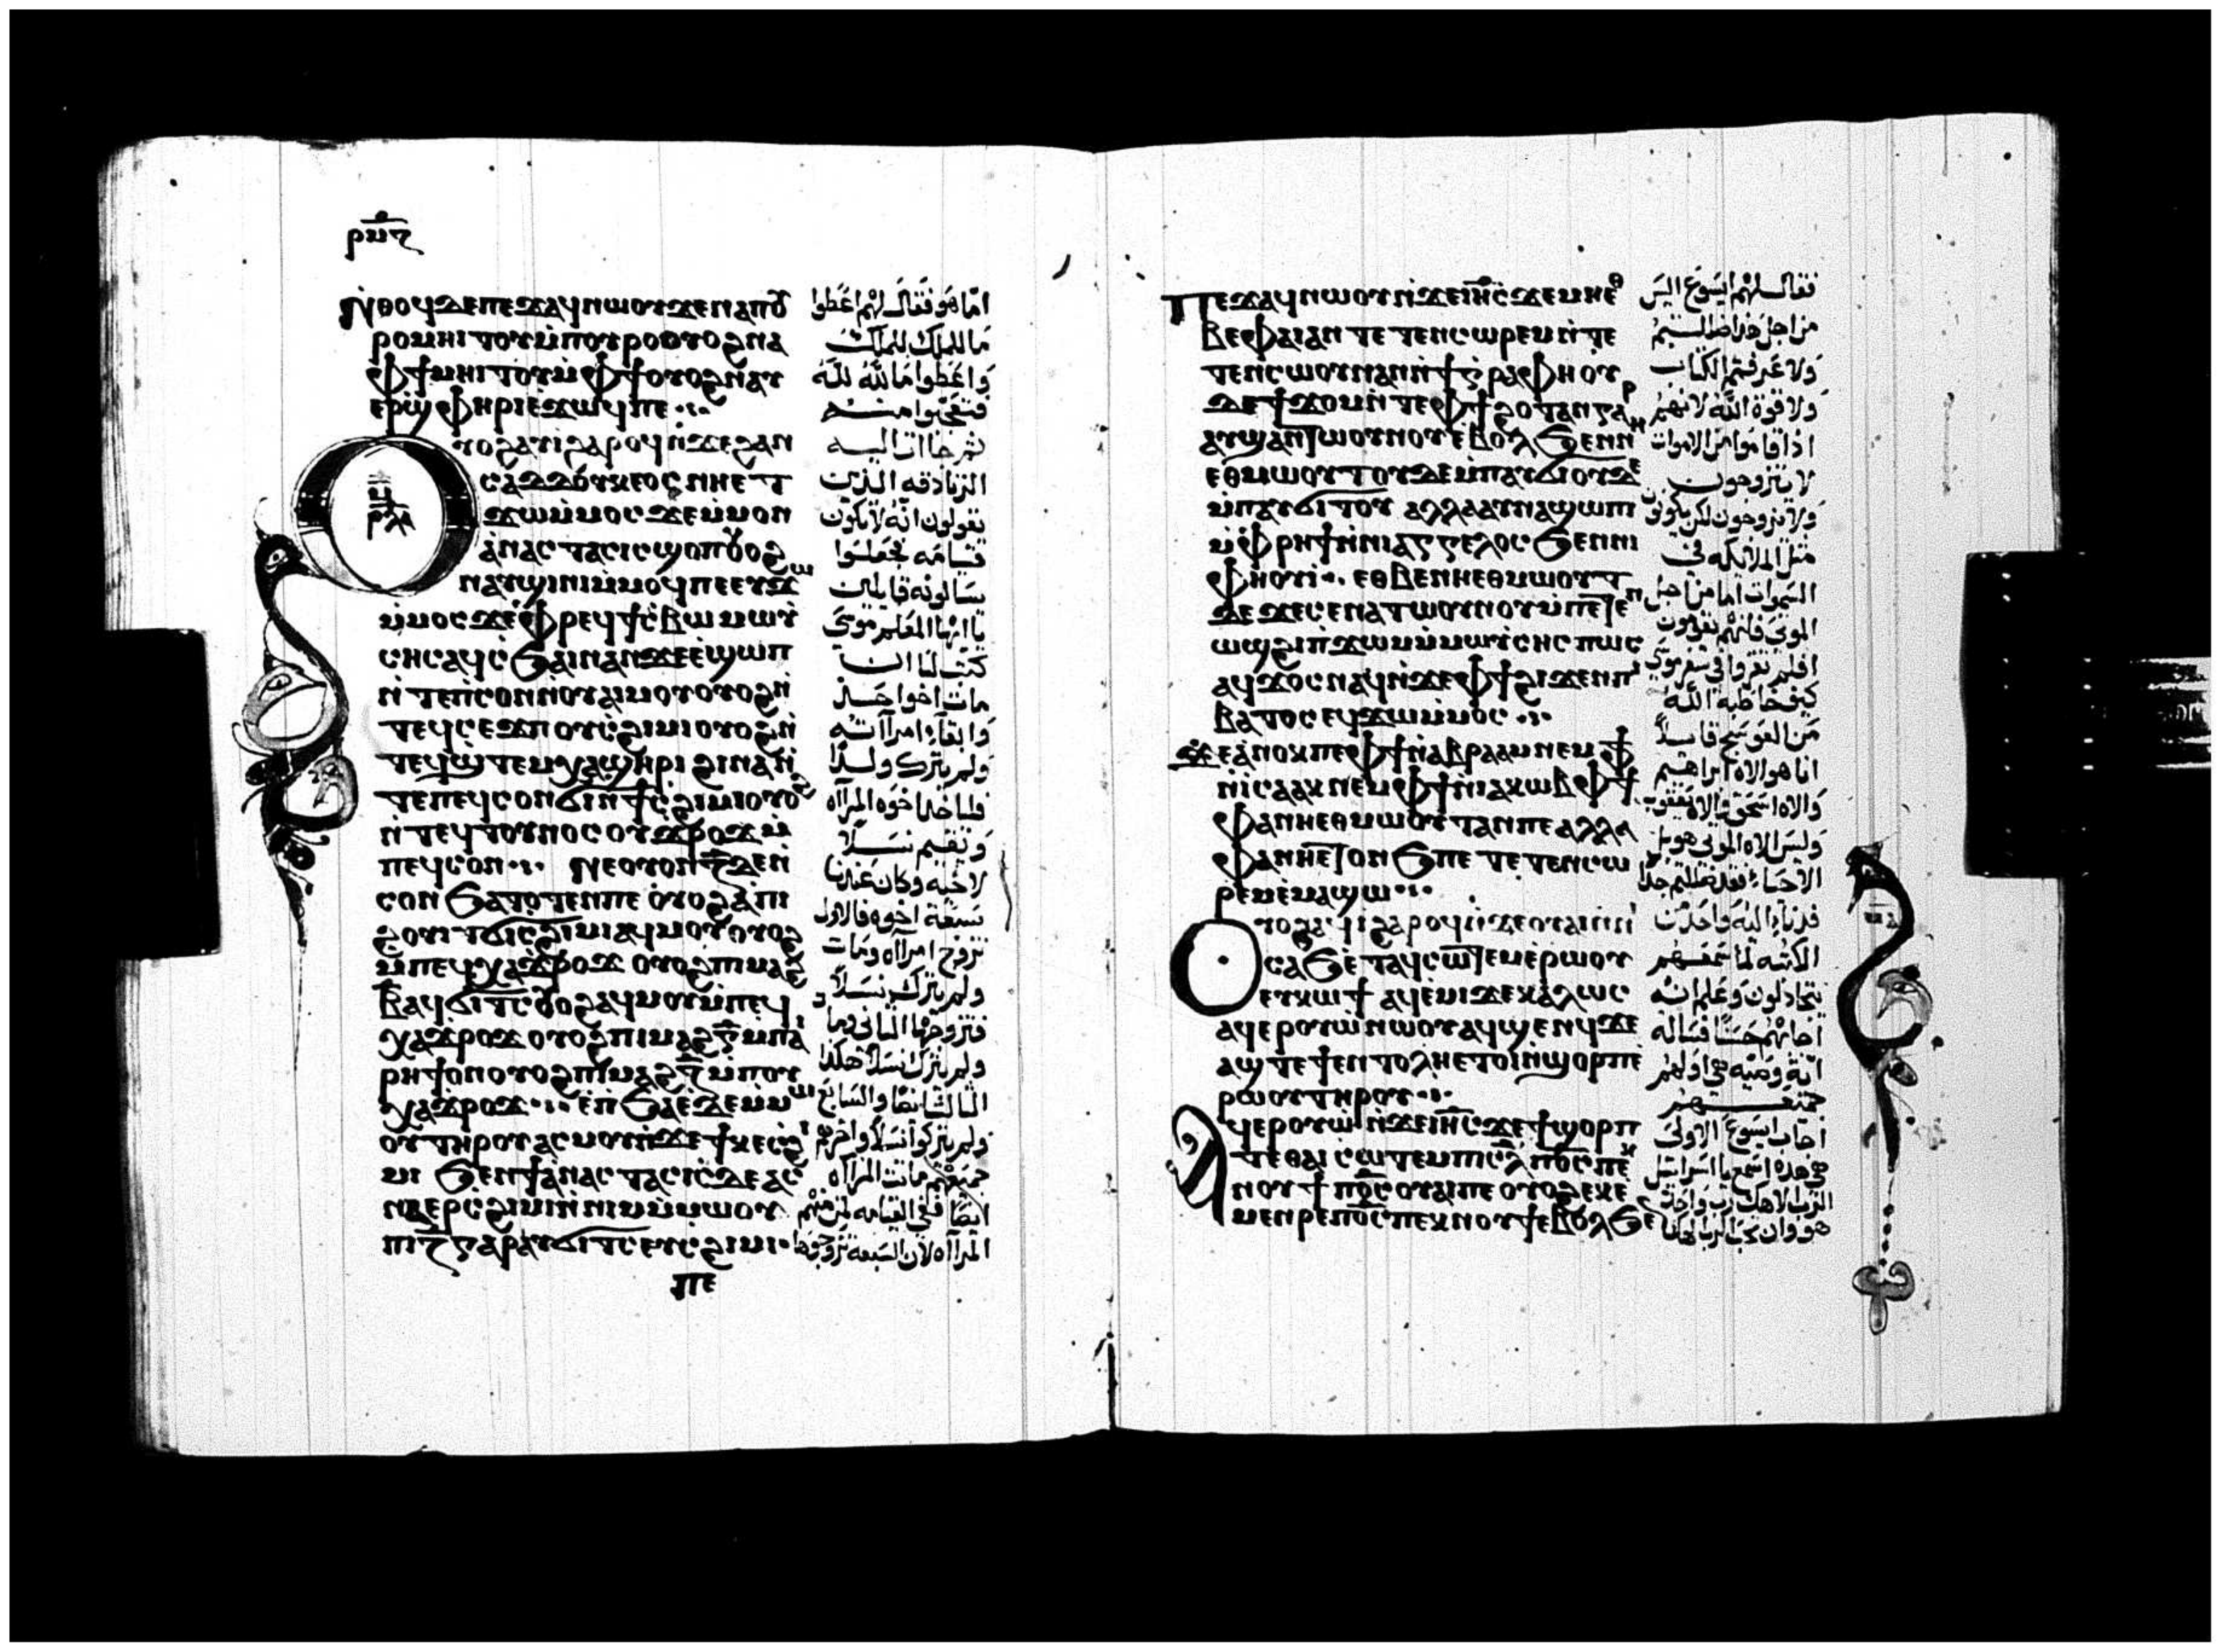 ⲣⲙⲍ
Ⲛⲑⲟϥⲇⲉⲡⲉϫⲁϥⲛⲱⲟⲩϫⲉⲛⲁⲡⲟⲩ
ⲣⲟⲙⲏⲓⲧⲟⲩⲙ̇ⲡⲟⲩⲣⲟⲟⲩⲟϩⲛⲁ
ⲫϯⲙⲏⲓⲧⲟⲩⲙ̇ⲫϯⲟⲩⲟϩⲛⲁⲩ
ⲉⲣϣⲫⲏⲣⲓⲉϫⲱϥⲡⲉ
Ⲟⲩⲟϩⲁⲩⲓ̀ϩⲁⲣⲟϥⲛ̇ϫⲉϩⲁⲛ
ⲥⲁⲇⲇⲟⲩⲕⲉⲟⲥⲛⲏⲉⲧ
ϫⲱⲙ̇ⲙⲟⲥϫⲉⲙ̇ⲙⲟⲛ
ⲁ̇ⲛⲁⲥⲧⲁⲥⲓⲥϣⲟⲡⲟⲩⲟϩ
ⲛⲁⲩϣⲓⲛⲓⲙ̇ⲙⲟϥⲡⲉⲉⲩϫⲱ
ⲙ̇ⲙⲟⲥϫⲉⲫⲣⲉϥϯⲥ̇ⲃⲱⲙⲱⲩ̇
ⲥⲏⲥⲁϥⲥ̇ϧⲁⲓⲛⲁⲛϫⲉⲉ̇ϣⲱⲡ
ⲛ̇ⲧⲉⲡⲥⲟⲛⲛ̇ⲟⲩⲁⲓⲙⲟⲩⲟⲩⲟϩⲛ̇
ⲧⲉϥⲥⲉϫⲡⲟⲩⲥ̇ϩⲓⲙⲓⲟⲩⲟϩⲛ̇
ⲧⲉϥϣ̇ⲧⲉⲙⲭⲁϣⲏⲣⲓϩⲓⲛⲁⲛ̇
ⲧⲉⲡⲉϥⲥⲟⲛϭⲓⲛ̇ϯⲥ̇ϩⲓⲙⲓⲟⲩⲟϩ
ⲛ̇ⲧⲉϥⲧⲟⲩⲛⲟⲥⲟⲩϫⲣⲟϫⲙ̇
ⲡⲉϥⲥⲟⲛ Ⲛⲉⲟⲩⲟⲛⲍ̄ⲇⲉⲛ̇
ⲥⲟⲛϧⲁⲧⲟⲧⲉⲛⲡⲉ ⲟⲩⲟϩⲁ̇ⲡⲓ
ϩⲟⲩⲓⲧϭⲓⲥ̇ϩⲓⲙⲓⲁϥⲙⲟⲩⲟⲩⲟϩ
ⲙ̇ⲡⲉϥⲭⲁϫⲣⲟϫ ⲟⲩⲟϩⲡⲓⲙⲁϩ
ⲃ̄ⲁϥϭⲓⲧⲥⲟⲩⲟϩⲁϥⲙⲟⲩⲙ̇ⲡⲉϥ
ⲭⲁϫⲣⲟϫⲟⲩⲟϩⲡⲓⲙⲁϩⲅ̄ⲙ̇ⲡⲁⲓ
ⲣⲏϯⲟⲛⲟⲩⲟϩⲡⲓⲙⲁϩⲍ̄ⲙ̇ⲡⲟⲩ
ⲭⲁϫⲣⲟϫ ⲉ̇ⲡϧⲁⲉ̇ⲇⲉⲙ̇ⲙⲱ
ⲟⲩⲧⲏⲣⲟⲩⲁⲥⲙⲟⲩⲛ̇ϫⲉϯⲕⲉⲥ̇ϩⲓ
ⲙⲓ ϧⲉⲛϯⲁ̇ⲛⲁⲥⲧⲁⲥⲓⲥⲇⲉⲁⲥ
ⲛⲁⲉⲣⲥ̇ϩⲓⲙⲓⲛ̇ⲛⲓⲙⲙ̇ⲙⲱⲟⲩ
ⲡⲓⲍ̄ⲅⲁⲣⲁⲩϭⲓⲧⲥⲉⲩⲥ̇ϩⲓⲙⲓ
ⲡⲉ
اما هو فقال لهم اعطوا
ما للملك للملك
واعطوا ما لله لله
فتعجبوا منه
ثم جاءت اليه
الزنادقه الذين
يقولون انه لا تكون
قيامه فجعلوا
يسالونه قايلين
يا ايها المعلم موسى
كتب لنا ان
مات اخوا احد
وابقا امراته
ولم يترك ولدا
فلياخذ اخوه المراه
ويقيم نسلا
لاخيه وكان عندنا
سبعة اخوه فالاول
تزوج امراه ومات
ولم يترك نسلا
فتزوجها الثاني ومات
ولم يترك نسلا هكذا
الثالث ايضا والسابع
ولم يتركوا نسلا واخرهم
جميعهم ماتت المراه
ايضا ففي القيامه لمن منهم
المراه لان السبعة تزوجوها
Ⲡⲉϫⲁϥⲛⲱⲟⲩⲛ̇ϫⲉⲓⲏ̅ⲥ̅ϫⲉⲙⲏⲉⲑ
ⲃⲉⲫⲁⲓⲁⲛⲧⲉⲧⲉⲛⲥⲱⲣⲉⲙⲛ̇ⲧⲉ
ⲧⲉⲛⲥⲱⲟⲩⲛⲁⲛⲛ̇ϯⲅⲣⲁⲫⲏⲟⲩ
ⲇⲉϯϫⲟⲙⲛ̇ⲧⲉⲫϯϩⲟⲧⲁⲛⲅⲁⲣ
ⲁⲩϣⲁⲛⲧⲱⲟⲩⲛⲟⲩⲉⲃⲟⲗϧⲉⲛⲛⲏ
ⲉⲑⲙⲱⲟⲩⲧⲟⲩⲇⲉⲙ̇ⲡⲁⲩϭⲓⲟⲩⲇⲉ
ⲙ̇ⲡⲁⲩϭⲓⲧⲟⲩ ⲁⲗⲗⲁⲁⲩⲛⲁϣⲱⲡ
ⲙ̇ⲫⲣⲏϯⲛ̇ⲛⲓⲁⲅⲅⲉⲗⲟⲥϧⲉⲛⲛⲓ
ⲫⲏⲟⲩⲓ ⲉⲑⲃⲉⲛⲏⲉⲑⲙⲱⲟⲩⲧ
ⲇⲉϫⲉⲥⲉⲛⲁⲧⲱⲟⲩⲛⲟⲩⲙ̇ⲡⲉⲧⲉⲛ
ⲱϣϩⲓⲡ̇ϫⲱⲙⲙ̇ⲙⲱⲩ̇ⲥⲏⲥⲡⲱⲥ
ⲁϥϫⲟⲥⲛⲁϥⲛ̇ϫⲉⲫϯϩⲓϫⲉⲛⲡⲓ
ⲃⲁⲧⲟⲥⲉϥϫⲱⲙ̇ⲙⲟⲥ
ϫⲉⲁ̇ⲛⲟⲕⲡⲉⲫϯⲛ̇ⲁⲃⲣⲁⲁⲙⲛⲉⲙⲫϯ
ⲛ̇ⲓⲥⲁⲁⲕⲛⲉⲙⲫϯⲛ̇ⲓⲁⲕⲱⲃⲫϯ
ⲫⲁⲛⲏⲉⲑⲙⲱⲟⲩⲧⲁⲛⲡⲉⲁⲗⲗⲁ
ⲫⲁⲛⲏⲉⲧⲟⲛϧⲡⲉ ⲧⲉⲧⲉⲛⲥⲱ
ⲣⲉⲙⲉ̇ⲙⲁϣⲱ
Ⲟⲩⲟϩⲁϥⲓ̀ϩⲁⲣⲟϥⲛ̇ϫⲉⲟⲩⲁⲓⲛ̇ⲛⲓ
ⲥⲁϧⲉ̇ⲧⲁϥⲥⲱⲧⲉⲙⲉ̇ⲣⲱⲟⲩ
ⲉⲩⲕⲱϯ ⲁϥⲉ̇ⲙⲓϫⲉⲕⲁⲗⲱⲥ
ⲁϥⲉⲣⲟⲩⲱ̇ⲛⲱⲟⲩⲁϥϣⲉⲛϥϫⲉ
ⲁϣⲧⲉϯⲉⲛⲧⲟⲗⲏⲉⲧⲟⲓⲛ̇ϣⲟⲣⲡⲉ̇
ⲣⲱⲟⲩⲧⲏⲣⲟⲩ
Ⲁϥⲉⲣⲟⲩⲱ̇ⲛ̇ϫⲉⲓⲏ̅ⲥ̅ϫⲉϯϣⲟⲣⲡ
ⲧⲉⲑⲁⲓ ⲥⲱⲧⲉⲙⲡⲓⲥ̅ⲗ̅ⲡⲟ̅ⲥ̅ⲡⲉⲕ
ⲛⲟⲩϯⲡⲟ̅ⲥ̅ⲟⲩⲁⲓⲡⲉⲟⲩⲟϩⲉⲕⲉ
ⲙⲉⲛⲣⲉⲡⲟ̅ⲥ̅ⲡⲉⲕⲛⲟⲩϯⲉⲃⲟⲗϧⲉ
فقال لهم ايسوع اليس
من اجل هذا ضللتم
ولا عرفتم الكتاب
ولا قوة الله لانهم
اذا قاموا من الاموات
لا يتزوجون
ولا يتزوجون لكن يكونون
مثل الملايكه في
السموات اما من اجل
الموتى فانهم يقومون
افلم تقروا في سفر موسى
كيف خاطبه الله
من العوسج قايلا
انا هو الاه ابراهيم
والاه اسحق والاه يعقوب
وليس الاه الموتى هو بل
الاحيا فقد ضللتم جدا
فدنا اليه واحد من
الكتبه لما سمعهم
يتجادلون وعلم انه
اجابهم حسنا فساله
اية وصيه هي اولهم
جميعهم
اجاب ايسوع الاولى
هي هذه اسمع يا اسراييل
الرب الاهك رب واحد
هو وان تحب الرب الهك